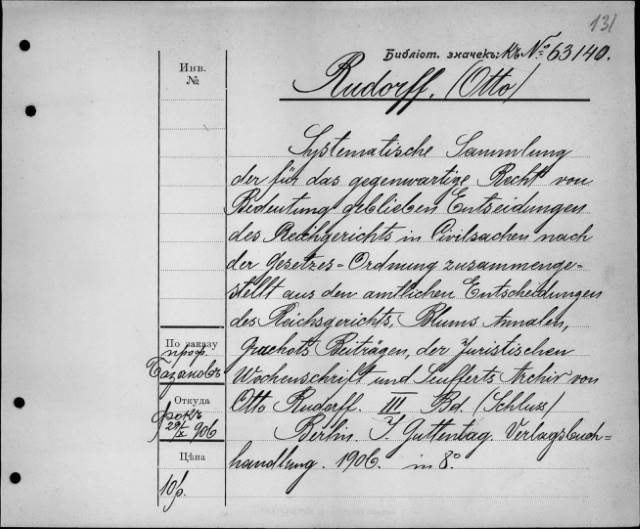 131
Библіот. значекъ: Къ № 63140.
Инв.
№
Rudorff. (Otto)
Systematische Sammlung
der für das gegenwartige Recht von
Bedeutung geblieben Entseidungen
des Reichgerichts in Civilsachen nach
der Gesetzes=Ordnung zusammenge=
stellt aus den amtlichen Entscheidungen
des Reichsgerichts, Blums Annalen,
Gruchots Beiträgen, der Juristischen
Wochenschrift und Seufferts Archiv von
Otto Rudorff. III Bd. (Schluss)
Berlin. J. Guttentag. Verlagsbuch=
handlung. 1906. in 8°.
По заказу
проф.
Базановъ
Откуда
906
Цѣна
10 р.